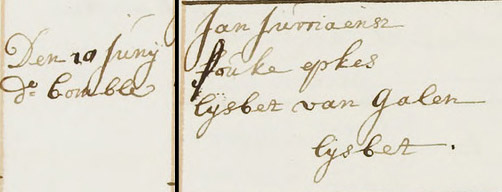 Den 10 Junij
de bomble
Jan Jurriaensz
fouke epkes
lijsbet van Galen
lijsbet.